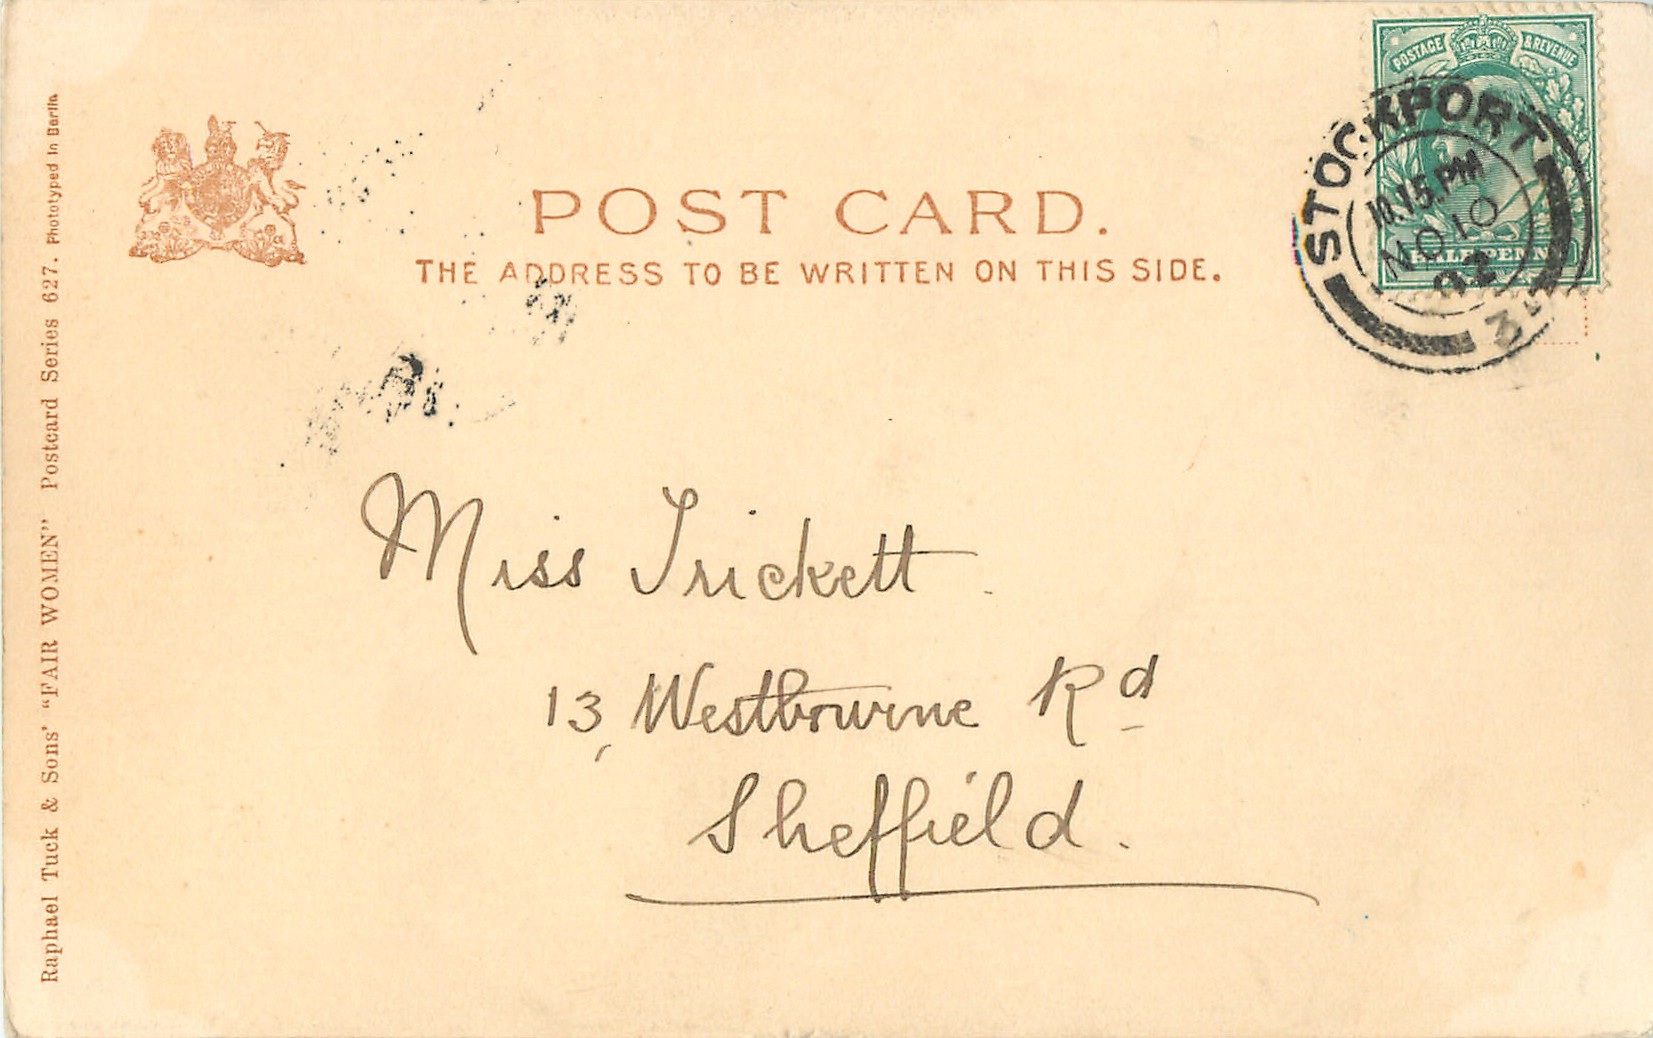 POST CARD.
THE ADDRESS TO BE WRITTEN ON THIS SIDE.
POSTAGE & REVENUE
STOCKPORT
10.15.PM
NO 10
02
Miss Trickett.
13, Westbourne Rd
Sheffield.
Raphael Tuck & Sons' "FAIR WOMEN" Postcard Series 627. Phototyped in Berlin.